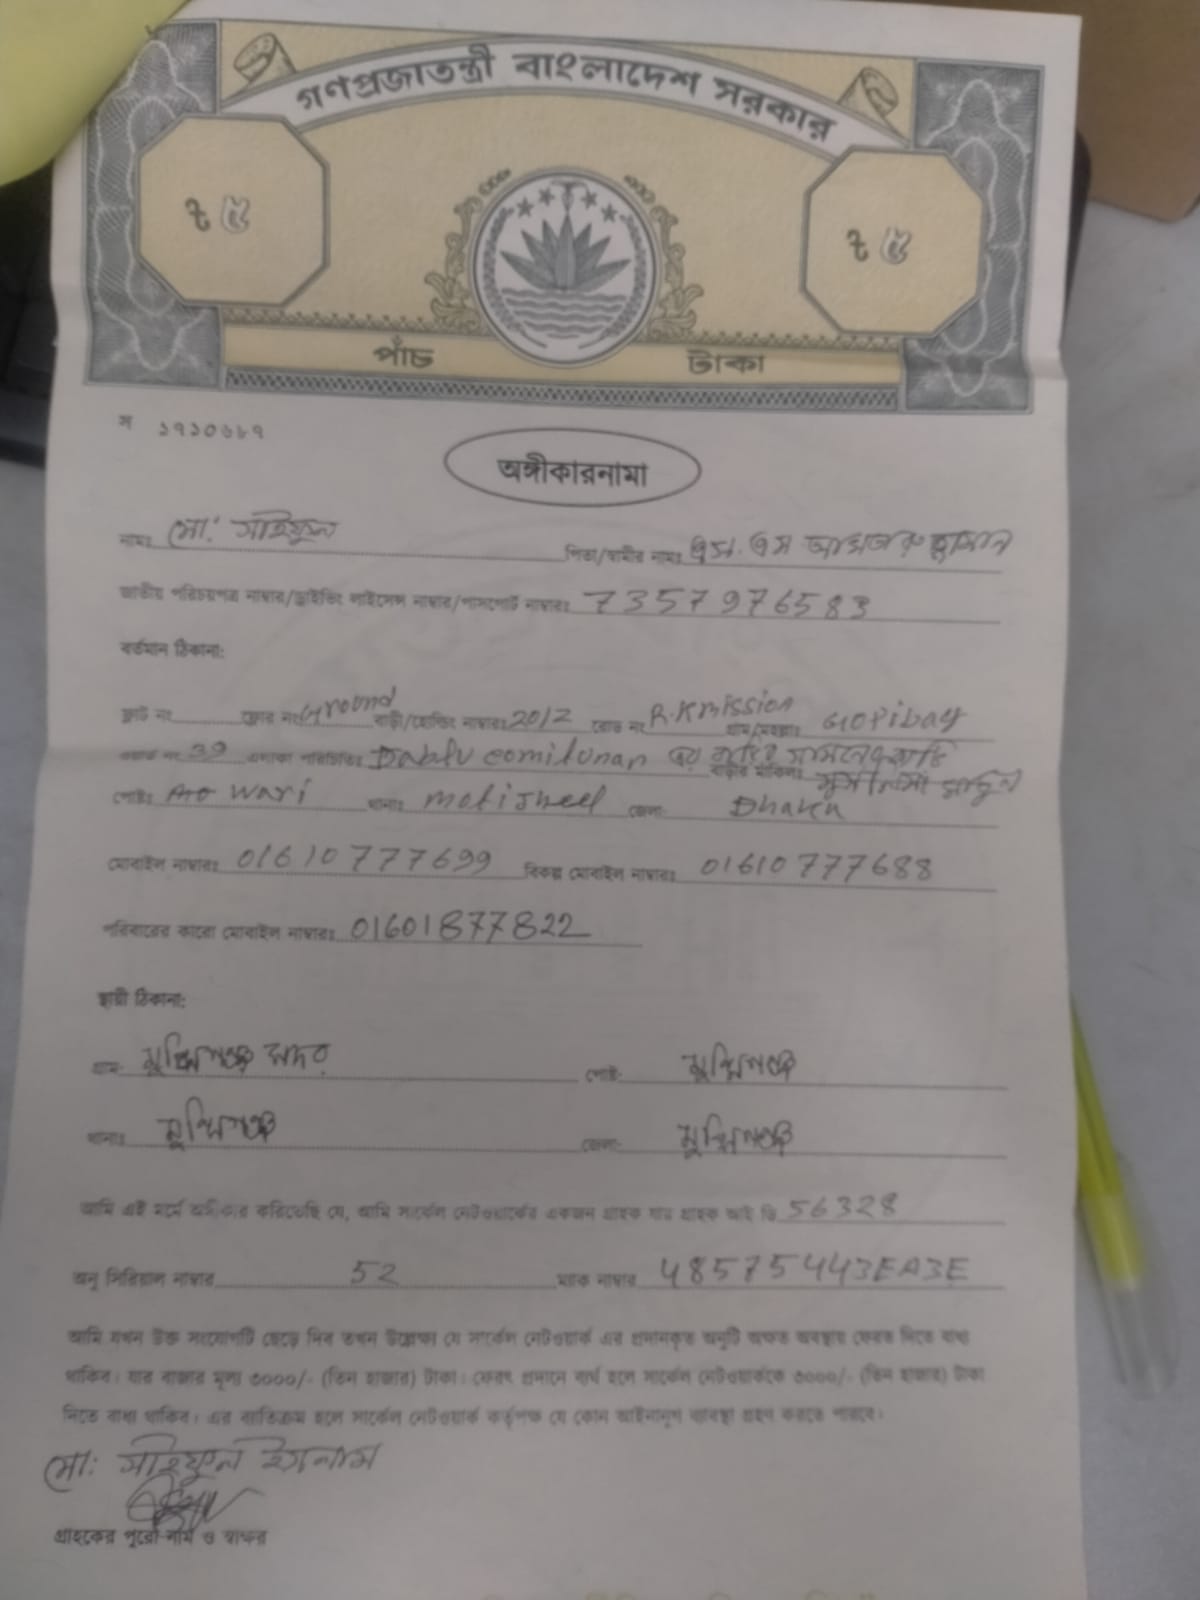 গণপ্রজাতন্ত্রী বাংলাদেশ সরকার
৳ ৫ ৳ ৫
পাঁচ টাকা
স ১৭১০৬৮৭
অঙ্গীকারনামা
নামঃ মো: সাইফুল পিতা/স্বামীর নামঃ এস. এম
জাতীয় পরিচয়পত্র নাম্বার/ড্রাইভিং লাইসেন্স নাম্বার/পাসপোর্ট নাম্বারঃ 7357976583
বর্তমান ঠিকানা:
ফ্লাট নং ফ্লোর নং Ground বাড়ী/হোল্ডিং নাম্বারঃ 20/2 রোড নং R.K mission গ্রাম/মহল্লাঃ Gopibag
ওয়ার্ড নং 39 এলাকা পরিচিতিঃ এর বাড়ির সামনের বাড়ি
বাড়ীর মালিকঃ
পোষ্টঃ Wari থানাঃ Motijheel জেলা: Dhaka
মোবাইল নাম্বারঃ 01610777699 বিকল্প মোবাইল নাম্বারঃ 01610777688
পরিবারের কারো মোবাইল নাম্বারঃ 01601877822
স্থায়ী ঠিকানা:
গ্রাম: মুন্সিগঞ্জ সদর পোষ্ট: মুন্সিগঞ্জ
থানাঃ মুন্সিগঞ্জ জেলা: মুন্সিগঞ্জ
আমি এই মর্মে অঙ্গীকার করিতেছি যে, আমি সার্কেল নেটওয়ার্কের একজন গ্রাহক যার গ্রাহক আই ডি 56328
অনু সিরিয়াল নাম্বার 52 ম্যাক নাম্বার 48575443EA3E
আমি যখন উক্ত সংযোগটি ছেড়ে দিব তখন উল্লেক্ষ্য যে সার্কেল নেটওয়ার্ক এর প্রদানকৃত অনুটি অক্ষত অবস্থায় ফেরত দিতে বাধ্য
থাকিব। যার বাজার মূল্য ৩০০০/- (তিন হাজার) টাকা। ফেরৎ প্রদানে ব্যর্থ হলে সার্কেল নেটওয়ার্ককে ৩০০০/- (তিন হাজার) টাকা
দিতে বাধ্য থাকিব। এর ব্যতিক্রম হলে সার্কেল নেটওয়ার্ক কর্তৃপক্ষ যে কোন আইনানুগ ব্যবস্থা গ্রহণ করতে পারবে।
মো: সাইফুল ইসলাম
গ্রাহকের পুরো নাম ও স্বাক্ষর